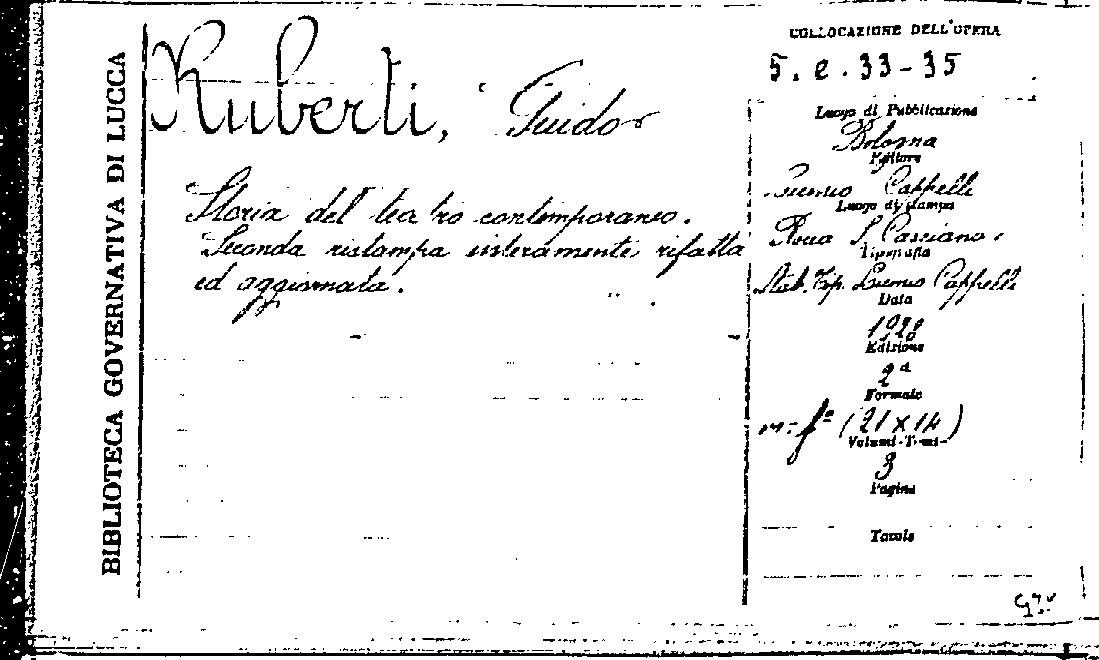 BIBLIOTECA GOVERNATIVA DI LUCCA
Ruberti, Guido
Storia del teatro contemporaneo.
Seconda ristampa interamente rifatta
ed aggiornata.
COLLOCAZIONE DELL'OPERA
5. e. 33-35
Luogo di Pubblicazione
Bologna
Editore
Licinio Cappelli
Luogo di stampa
Rocca S. Casciano.
Tipografia
Stab. Tip. Licinio Cappelli
Data
1928
Edizione
2a
Formato
m-fº (21 x 14)
Volumi-Tomi-
3
Pagine
Tavole